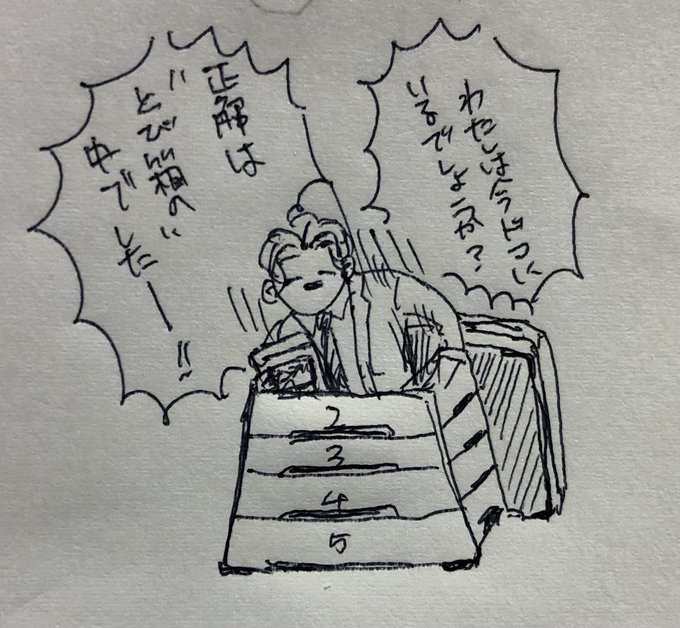 わたしは今ドコに
いるでしょうか？
正解は
"とび箱の"
中でしたー!!
2
3
4
5